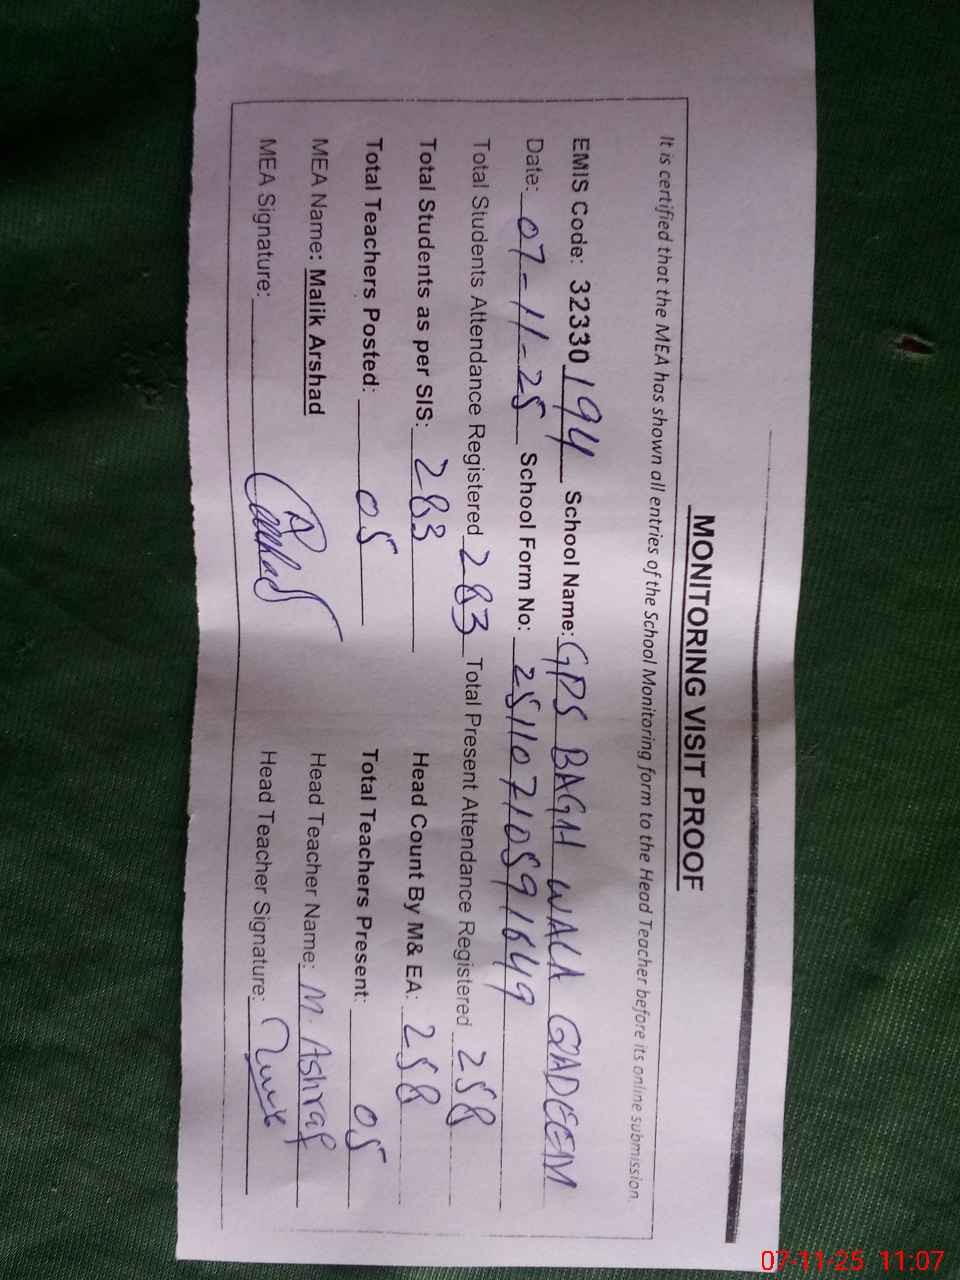 MONITORING VISIT PROOF
It is certified that the MEA has shown all entries of the School Monitoring form to the Head Teacher before its online submission.
EMIS Code: 32330194 School Name: GPS BAGH WALA QADEEM
Date: 07-11-25 School Form No: 25110710591649
Total Students Attendance Registered 283 Total Present Attendance Registered 258
Total Students as per SIS: 283 Head Count By M& EA: 258
Total Teachers Posted: 05 Total Teachers Present: 05
MEA Name: Malik Arshad Head Teacher Name: M. Ashraf
MEA Signature: Arshad Head Teacher Signature:
07-11-25 11:07